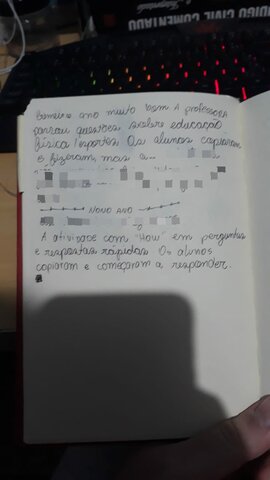 CÓDIGO CIVIL COMENTADO
Primeiro ano muito bem A professora
passou questões sobre educação
física/esportes Os alunos copiaram
e fizeram, mas a
NONO ANO
A atividade com "How" em perguntas
e respostas rápidas Os alunos
copiaram e começaram a responder.